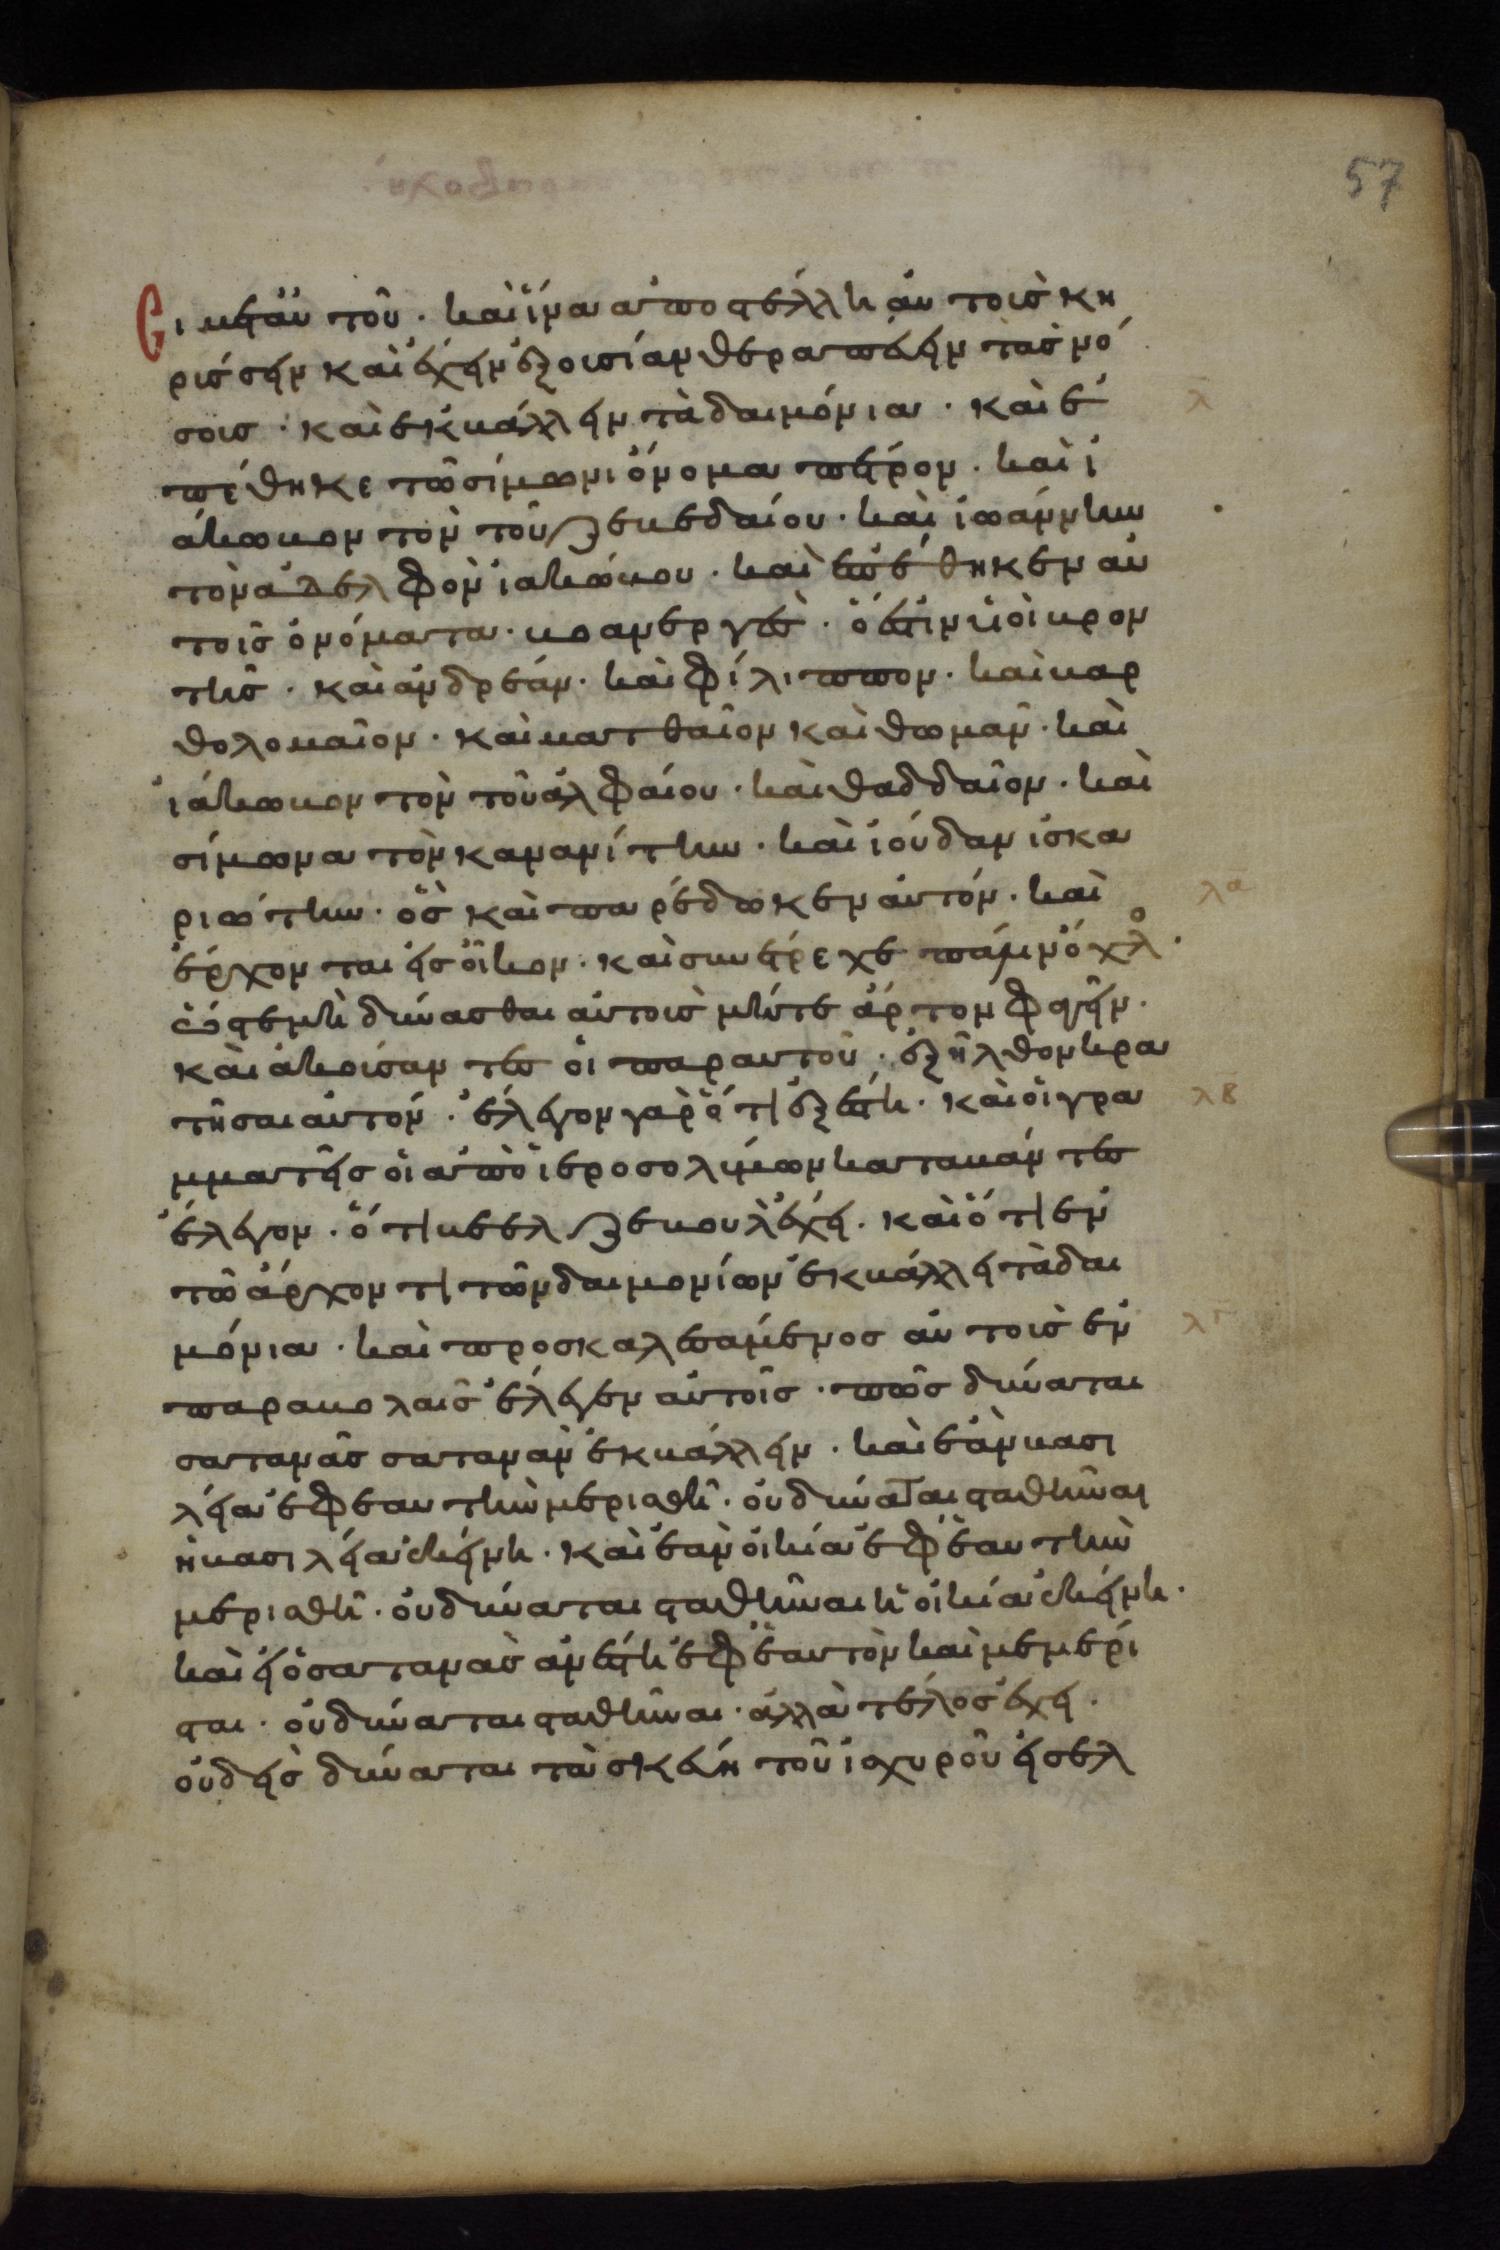 57
Ει μετ' αὐτοῦ · καὶ ἵνα ἀποστέλλη αὐτοὺς κη
ρύσσειν καὶ ἔχειν ἐξουσίαν θεραπεύειν τὰς νό
σους · καὶ ἐκβάλλειν τὰ δαιμόνια · καὶ ἐ
πέθηκε τῶ σίμωνι ὄνομα πέτρον · καὶ ἰ
άκωβον τὸν τοῦ ζεβεδαίου · καὶ ἰωάννην
τὸν ἀδελφὸν ἰακώβου · καὶ ἐπέθηκεν αὐ
τοῖς ὀνόματα · βοανεργές · ὅ ἐστιν υἱοὶ βρον
τῆς · καὶ ἀνδρέαν · καὶ φίλιππον · καὶ βαρ
θολομαῖον · καὶ ματθαῖον καὶ θωμᾶν · καὶ
ἰάκωβον τὸν τοῦ ἀλφαίου · καὶ θαδδαῖον · καὶ
σίμωνα τὸν κανανίτην · καὶ ἰούδαν ἰσκα
ριώτην · ὃς καὶ παρέδωκεν αὐτόν · καὶ
ἔρχονται εἰς οἶκον · καὶ συντρέχε πάλιν ὄχλο ·
ὥστε μὴ δύνασθαι αὐτοὺς μήτε ἄρτον φαγεῖν ·
καὶ ἀκούσαντες οἱ παρ αυτοῦ · ἐξῆλθον κρα
τῆσαι αὐτόν · ἔλεγον γὰρ ὅτι ἐξέστη · καὶ οἱ γρα
μματεῖς οἱ ἀπὸ ἱεροσολύμων καταβάντες
ἔλεγον · ὅτι βεελζεβοὺλ ἔχει · καὶ ὅτι ἐν
τῶ ἄρχοντι τῶν δαιμονίων ἐκβάλλει τὰ δαι
μόνια · καὶ προσκαλεσάμενος αὐτοὺς ἐν
παραβολαῖς ἔλεγεν αὐτοῖς · πῶς δύναται
σατανᾶς σατανᾶν ἐκβάλλειν · καὶ ἐὰν βασι
λεία ἐφ ἑαυτὴν μερισθῆ · οὐ δύναται σταθῆναι
ἡ βασιλεία ἐκείνη · καὶ ἐὰν οἰκία ἐφ ἑαυτὴν
μερισθῆ · οὐ δύναται σταθῆναι ἡ οἰκία ἐκείνη ·
καὶ εἰ ὁ σατανᾶς ἀνέστη ἐφ ἑαυτὸν καὶ μεμέρι
σται · οὐ δύναται σταθῆναι · ἀλλὰ τέλος ἔχει ·
οὐδεὶς δύναται τὰ σκεύη τοῦ ἰσχυροῦ εἰσελ
λ
λα
λβ
λγ